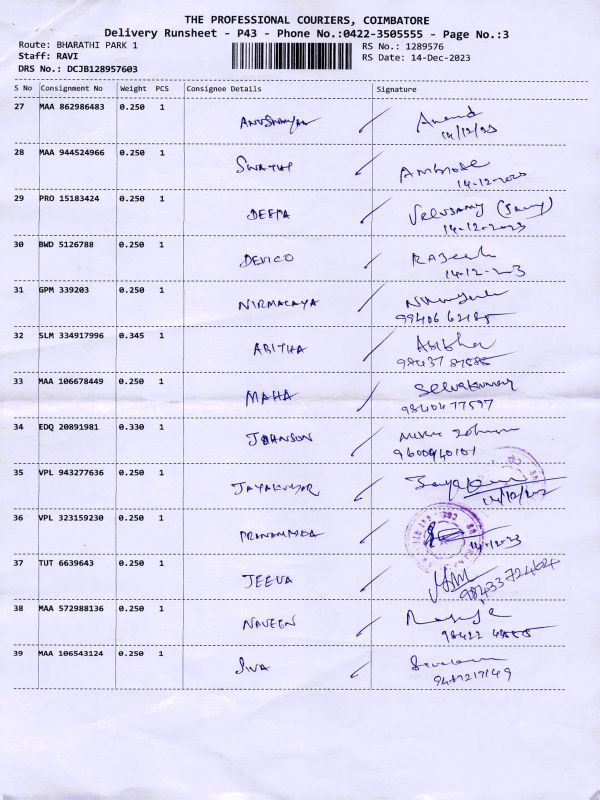 THE PROFESSIONAL COURIERS, COIMBATORE
Delivery Runsheet - P43 - Phone No.:0422-3505555 - Page No.:3
Route: BHARATHI PARK 1
RS No.: 1289576
Staff: RAVI
RS Date: 14-Dec-2023
DRS No.: DCJB128957603
S No Consignment No Weight PCS Consignee Details Signature
27 MAA 862986483 0.250 1 Anand
14/12/23
28 MAA 944524966 0.250 1 SWATHI Ambrose
14-12-2023
29 PRO 15183424 0.250 1 DEEPA Velusamy
14-12-2023
30 BWD 5126788 0.250 1 DEVICO Rajesh
14-12-23
31 GPM 339203 0.250 1 NIRMALAYA
99406 62185
32 SLM 334917996 0.345 1 ABITHA
98437
33 MAA 106678449 0.250 1 MAHA Selvakumar
98404 77597
34 EDQ 20891981 0.330 1 JOHNSON
9600940101
35 VPL 943277636 0.250 1 JAYAKUMAR
36 VPL 323159230 0.250 1
37 TUT 6639643 0.250 1 JEEVA
98433 72464
38 MAA 572988136 0.250 1 NAVEEN
98422
39 MAA 106543124 0.250 1 SIVA
9487217149